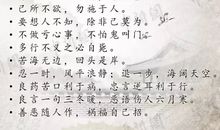 己所不欲，勿施于人。
要想人不知，除非己莫为。
不做亏心事，不怕鬼叫门
多行不义之必自毙。
苦海无边，回头是岸。
忍一时，风平浪静，退一步，海阔天空。
良药苦口利于病，忠言逆耳利于行。
良言一句三冬暖，恶语伤人六月寒。
善恶随人作，祸福自己招。